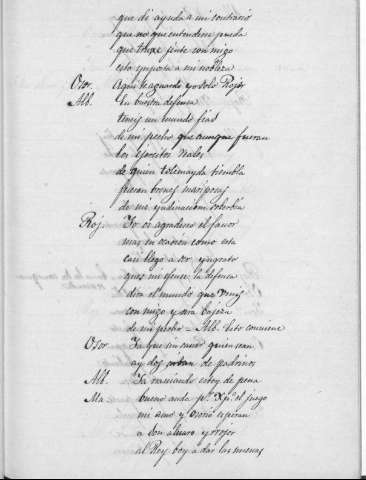 que dé ayuda a mi contrario
que no que entenderse pueda
que truxe jente con migo
esto ymporta a mi nobleza
Osor. Aqui te aguardo yo solo Rojas
Alb. En buestra defensa
teneys un mundo fiad
de mi pecho que aunque fueran
los ejercitos reales
de quien tolemayda tiembla
fueran brebes mariposas
de mi yndinacion soberbia
Roj. Yo os agradezco el favor
mas en ocasion como esta
casi llego a ser yngrato
pues me ofense la defensa
dira el mundo que venis
con migo y sera bajeza
de mi pecho – Alb. Esto conviene
Osor. Ya que sin saver quien sean
ay dos de padrinos
Alb. Ya rasciando estoy de pena
Ma bueno anda p.r Xp.o el juego
mi amo y Osorio esperan
a don albaro y rojas
al Rey boy a dar las nuevas